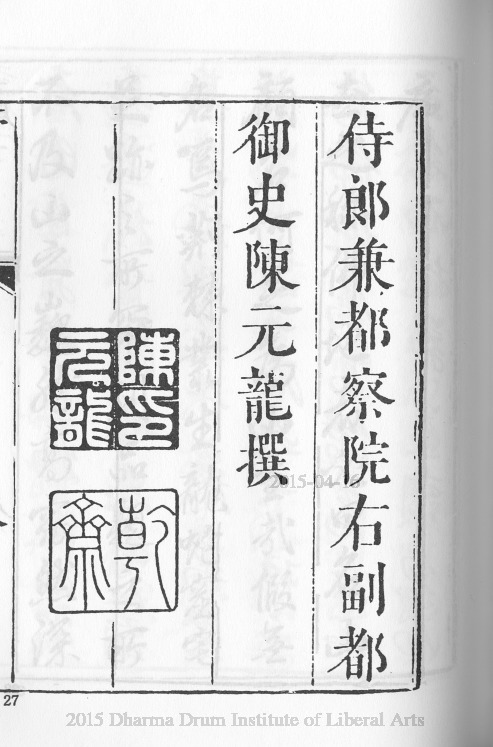 侍郎兼都察院右副都
御史陳元龍撰
陳元龍印
乾齋
27
2015-04-16
2015 Dharma Drum Institute of Liberal Arts